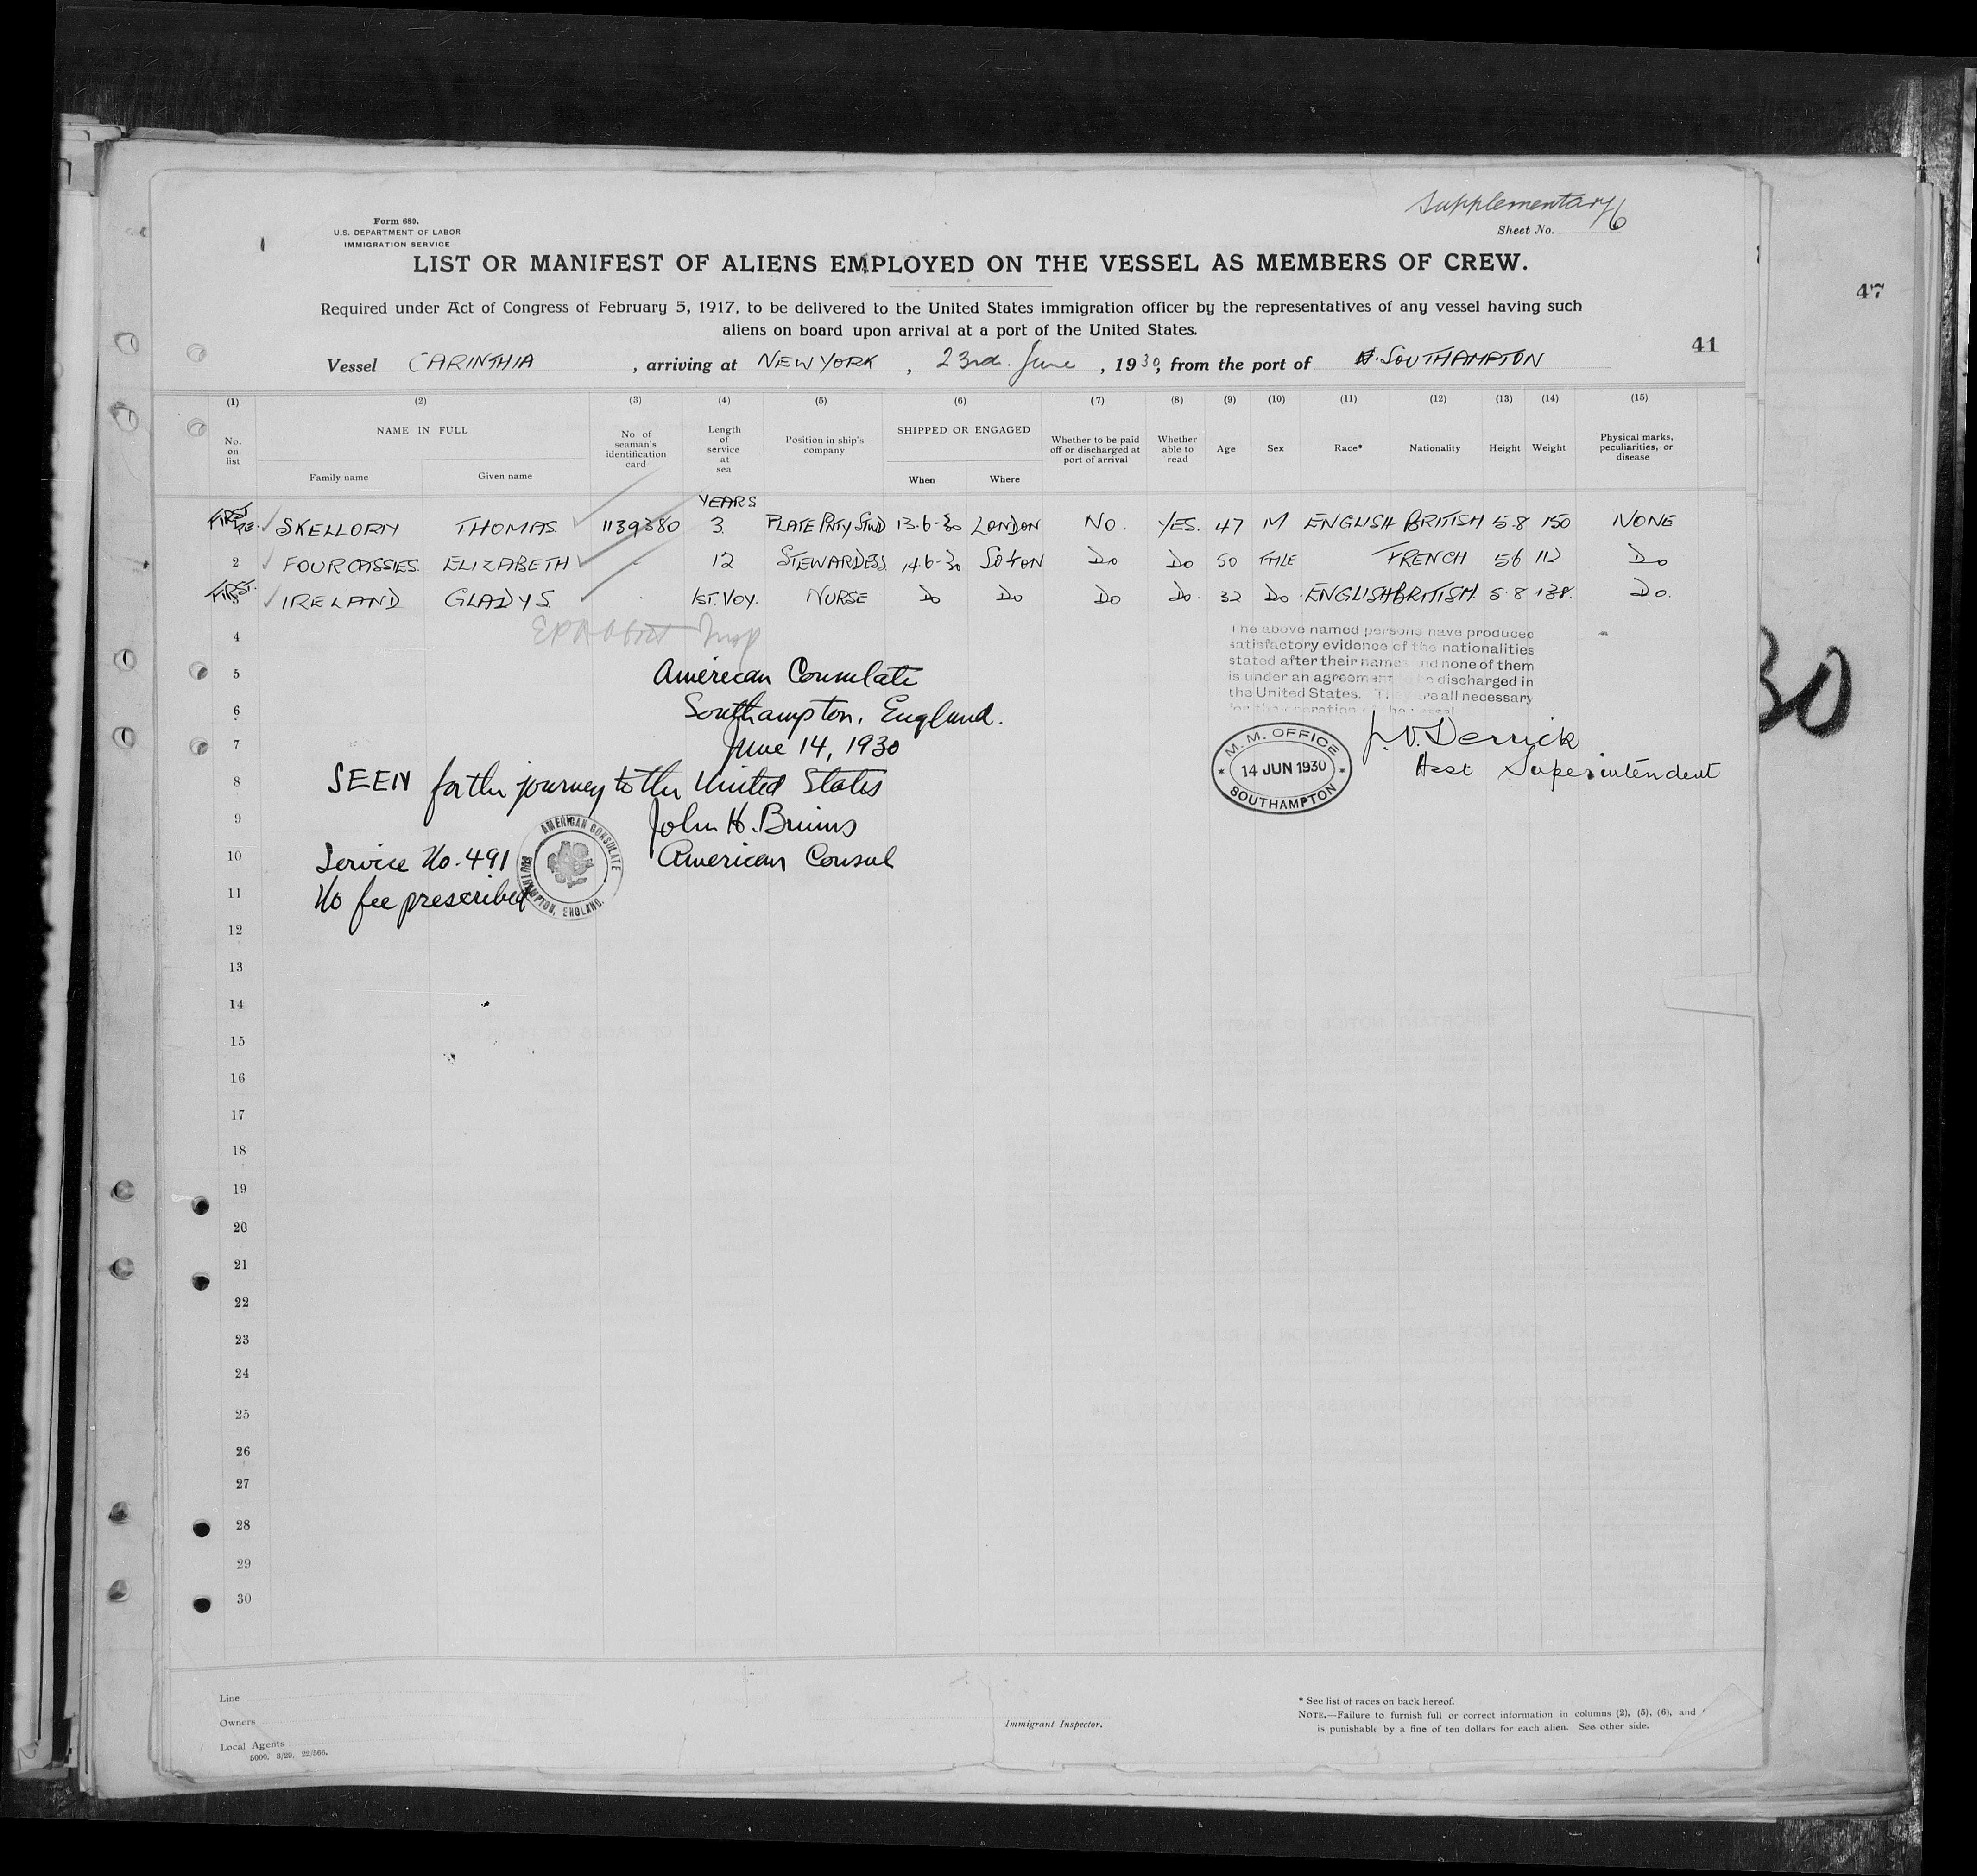 Supplementary
Form 680.
U.S. DEPARTMENT OF LABOR
IMMIGRATION SERVICE
Sheet No. 6
LIST OR MANIFEST OF ALIENS EMPLOYED ON THE VESSEL AS MEMBERS OF CREW.
47
Required under Act of Congress of February 5, 1917, to be delivered to the United States immigration officer by the representatives of any vessel having such
aliens on board upon arrival at a port of the United States.
41
Vessel CARINTHIA , arriving at NEW YORK , 23rd. June , 1930, from the port of SOUTHAMPTON
(1) (2) (3) (4) (5) (6) (7) (8) (9) (10) (11) (12) (13) (14) (15)
No. on list
NAME IN FULL
Family name Given name
No of seaman's identification card
Length of service at sea
Position in ship's company
SHIPPED OR ENGAGED
When Where
Whether to be paid off or discharged at port of arrival
Whether able to read
Age Sex Race* Nationality Height Weight
Physical marks, peculiarities, or disease
YEARS
FIRST SKELLORN THOMAS 1139380 3 PLATE PNTY STWD 13-6-30 LONDON NO. YES. 47 M ENGLISH BRITISH 5-8 150 NONE
2 FOURCASSIES ELIZABETH 12 STEWARDESS 14-6-30 SOTON DO DO 50 FMLE FRENCH 56 112 DO
FIRST. 3 IRELAND GLADYS 1ST. VOY. NURSE DO DO DO DO. 32 DO ENGLISH BRITISH 5-8 138. DO.
4
The above named persons have produced
satisfactory evidence of the nationalities
stated after their names and none of them
is under an agreement discharged in
the United States. They are all necessary
for the operation of the vessel
5 American Consulate
6 Southampton, England.
7 June 14, 1930
M. M. OFFICE
14 JUN 1930
SOUTHAMPTON
J. V. Derrick
Asst Superintendent
30
8 SEEN for the journey to the United States
9 John H. Bruins
10 Service No. 491 American Consul
AMERICAN CONSULATE
SOUTHAMPTON, ENGLAND.
11 No fee prescribed
12
13
14
15
16
17
18
19
20
21
22
23
24
25
26
27
28
29
30
Line
Owners
Local Agents
5000. 3/29. 22/566.
Immigrant Inspector.
* See list of races on back hereof.
NOTE.—Failure to furnish full or correct information in columns (2), (5), (6), and
is punishable by a fine of ten dollars for each alien. See other side.